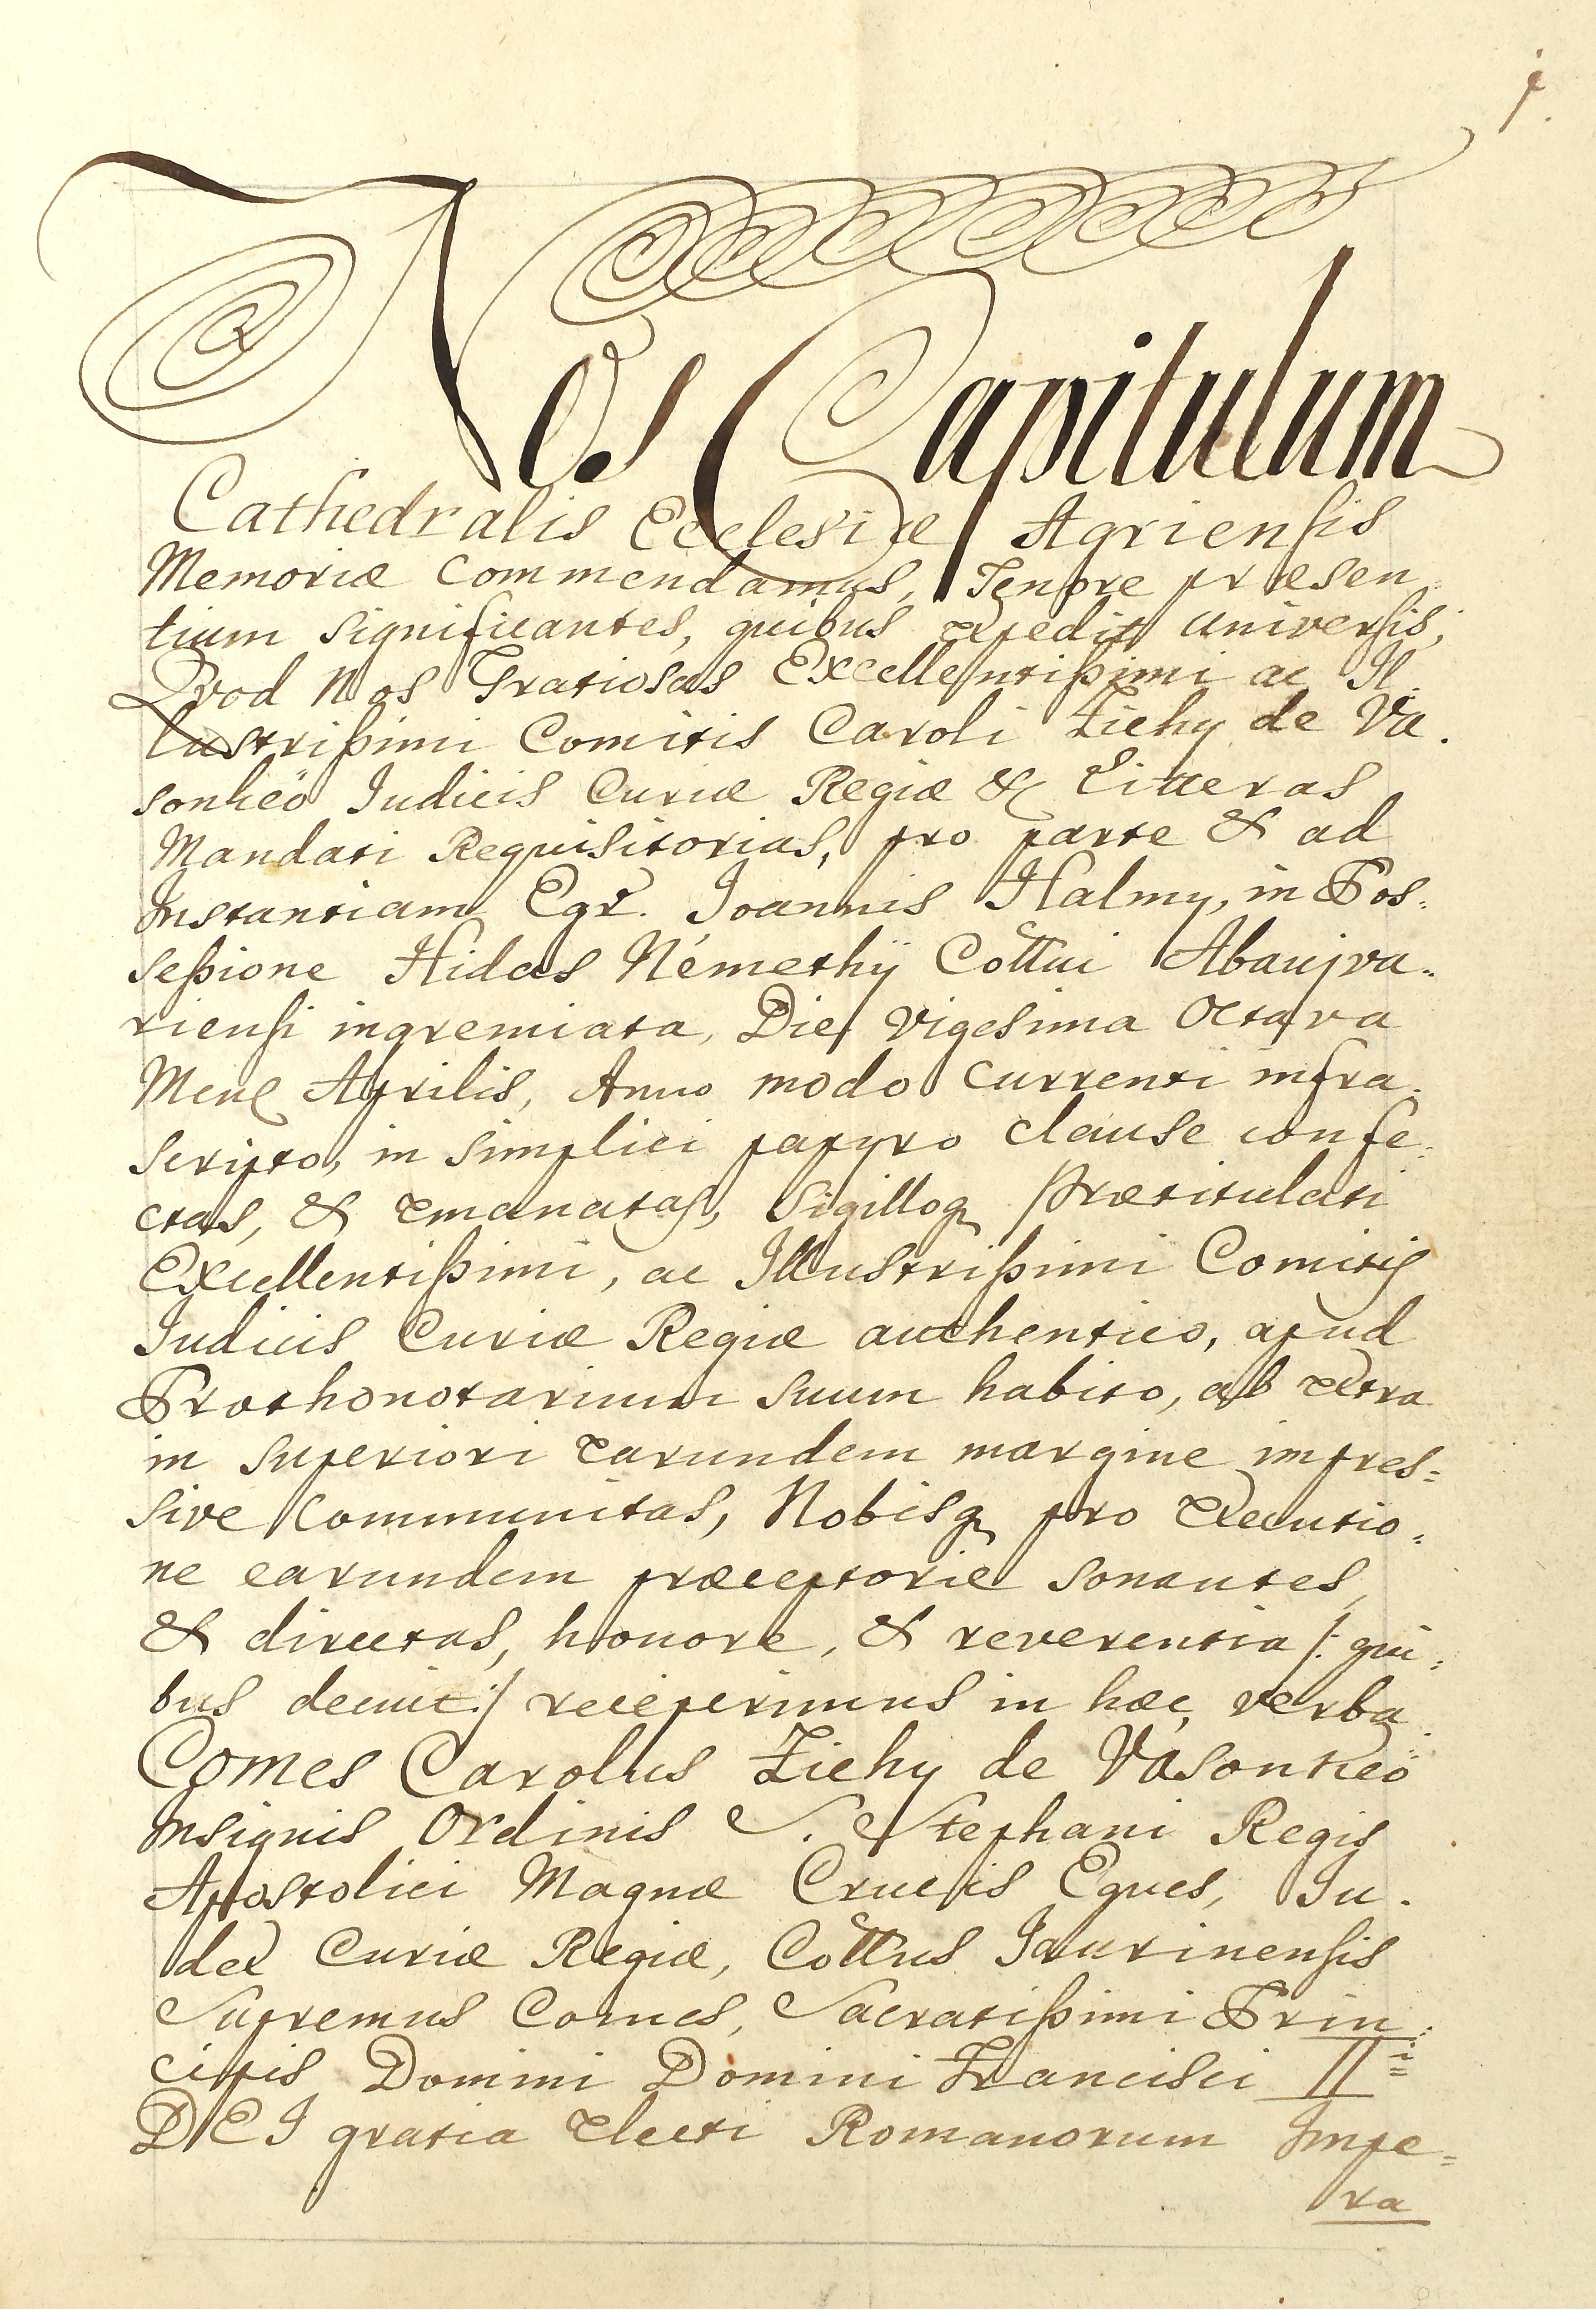 1.
Nos Capitulum
Cathedralis Ecclesiæ Agriensis
Memoriæ Commendamus, Tenore præsen
tium significantes, quibus expedit universis,
Qvod Nos Gratiosas Excellentissimi ac Il
lustrissimi Comitis Caroli Zichy de Va.
sonkeö Judicis Curiæ Regiæ & Litteras
Mandati Requisitorias, pro parte & ad
Instantiam Egr. Joannis Halmy, in Pos:
sessione Hidas Némethÿ Cottui Abaujva:
riensi ingremiata, Die vigesima Octava
Mens Aprilis, Anno modo currenti infra.
scripto, in simplici papyro clause confe:
ctas, & emanatas, Sigilloq Prætitulati
Excellentissimi, ac Illustrissimi Comitis
Judicis Curiæ Regiæ authentico, apud
Prothonotarium suum habito, ab extra
in superiori earundem margine impres:
sive Communitas, Nobisq pro Executio:
ne earundem præceptorie sonantes,
& directas, honore, & reverentia /: qui:
bus decuit :/ receperimus in hæc verba
Comes Carolus Zichy de Vasonkeö
Insignis Ordinis S. Stephani Regis
Apostolici Magnæ Crucis Eques, Ju.
dex Curiæ Regiæ, Cottus Jaurinensis
Supremus Comes, Sacratissimi Prin:
cipis Domini Domini Francisci II i
DEI gratia Electi Romanorum Impe:
ra